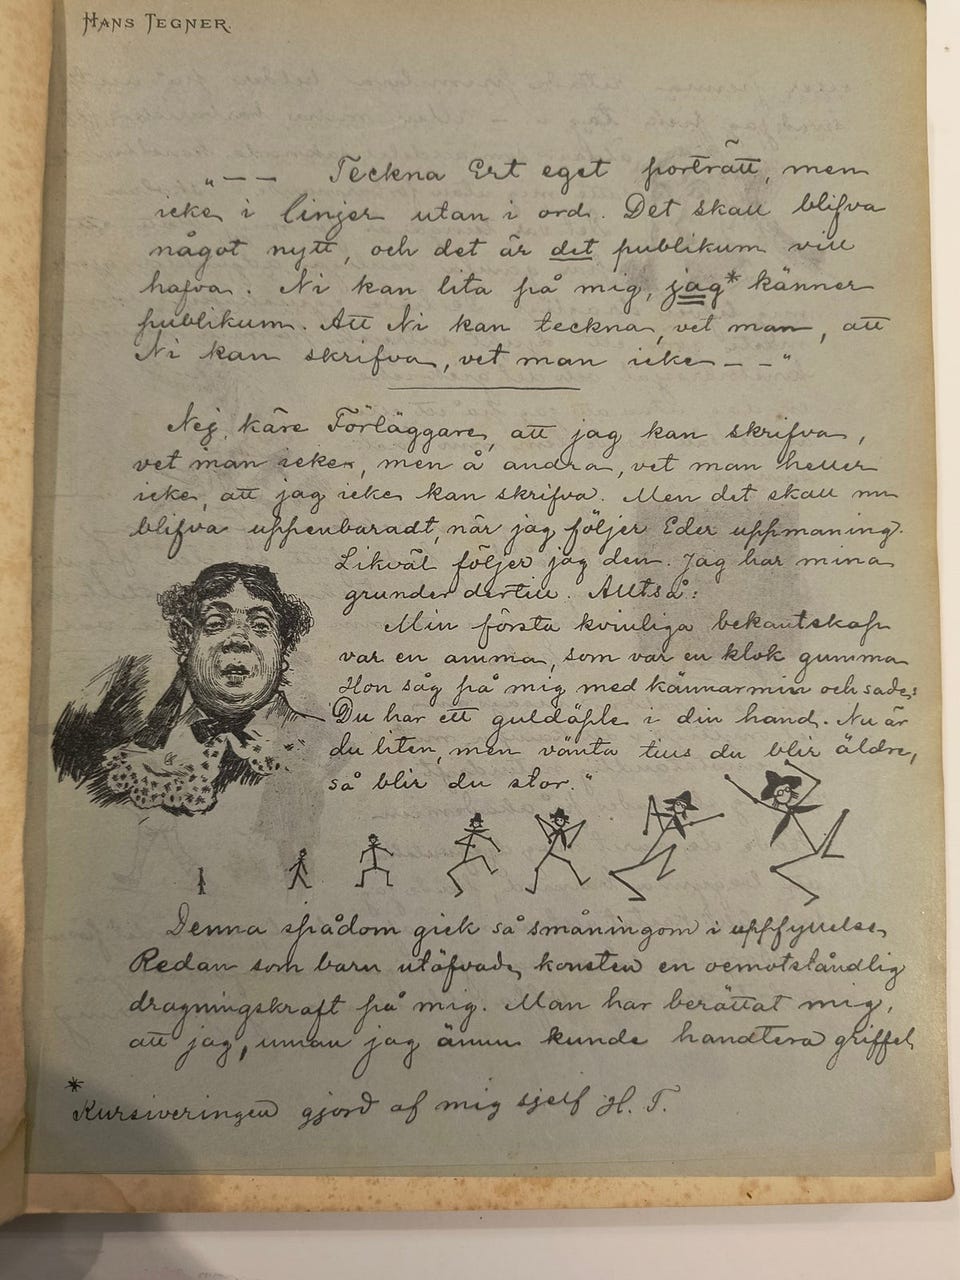 HANS TEGNER.
"—— Teckna Ert eget porträtt, men
icke i linjer utan i ord. Det skall blifva
något nytt, och det är det publikum vill
hafva. Ni kan lita på mig, jag* känner
publikum. Att Ni kan teckna, vet man, att
Ni kan skrifva, vet man icke ——"
Nej, käre Förläggare, att jag kan skrifva,
vet man icke, men å andra, vet man heller
icke, att jag icke kan skrifva. Men det skall nu
blifva uppenbaradt, när jag följer Eder uppmaning.
Likväl följer jag den. Jag har mina
grunder dertill. Alltså:
Min första kvinliga bekantskap
var en amma, som var en klok gumma
Hon såg på mig med kännarmin och sade:
"Du har ett guldäple i din hand. Nu är
du liten, men vänta tills du blir äldre,
så blir du stor."
Denna spådom gick så småningom i uppfyllelse.
Redan som barn utöfvade konsten en oemotståndlig
dragningskraft på mig. Man har berättat mig,
att jag, innan jag ännu kunde handtera griffel
* Kursiveringen gjord af mig sjelf H. T.